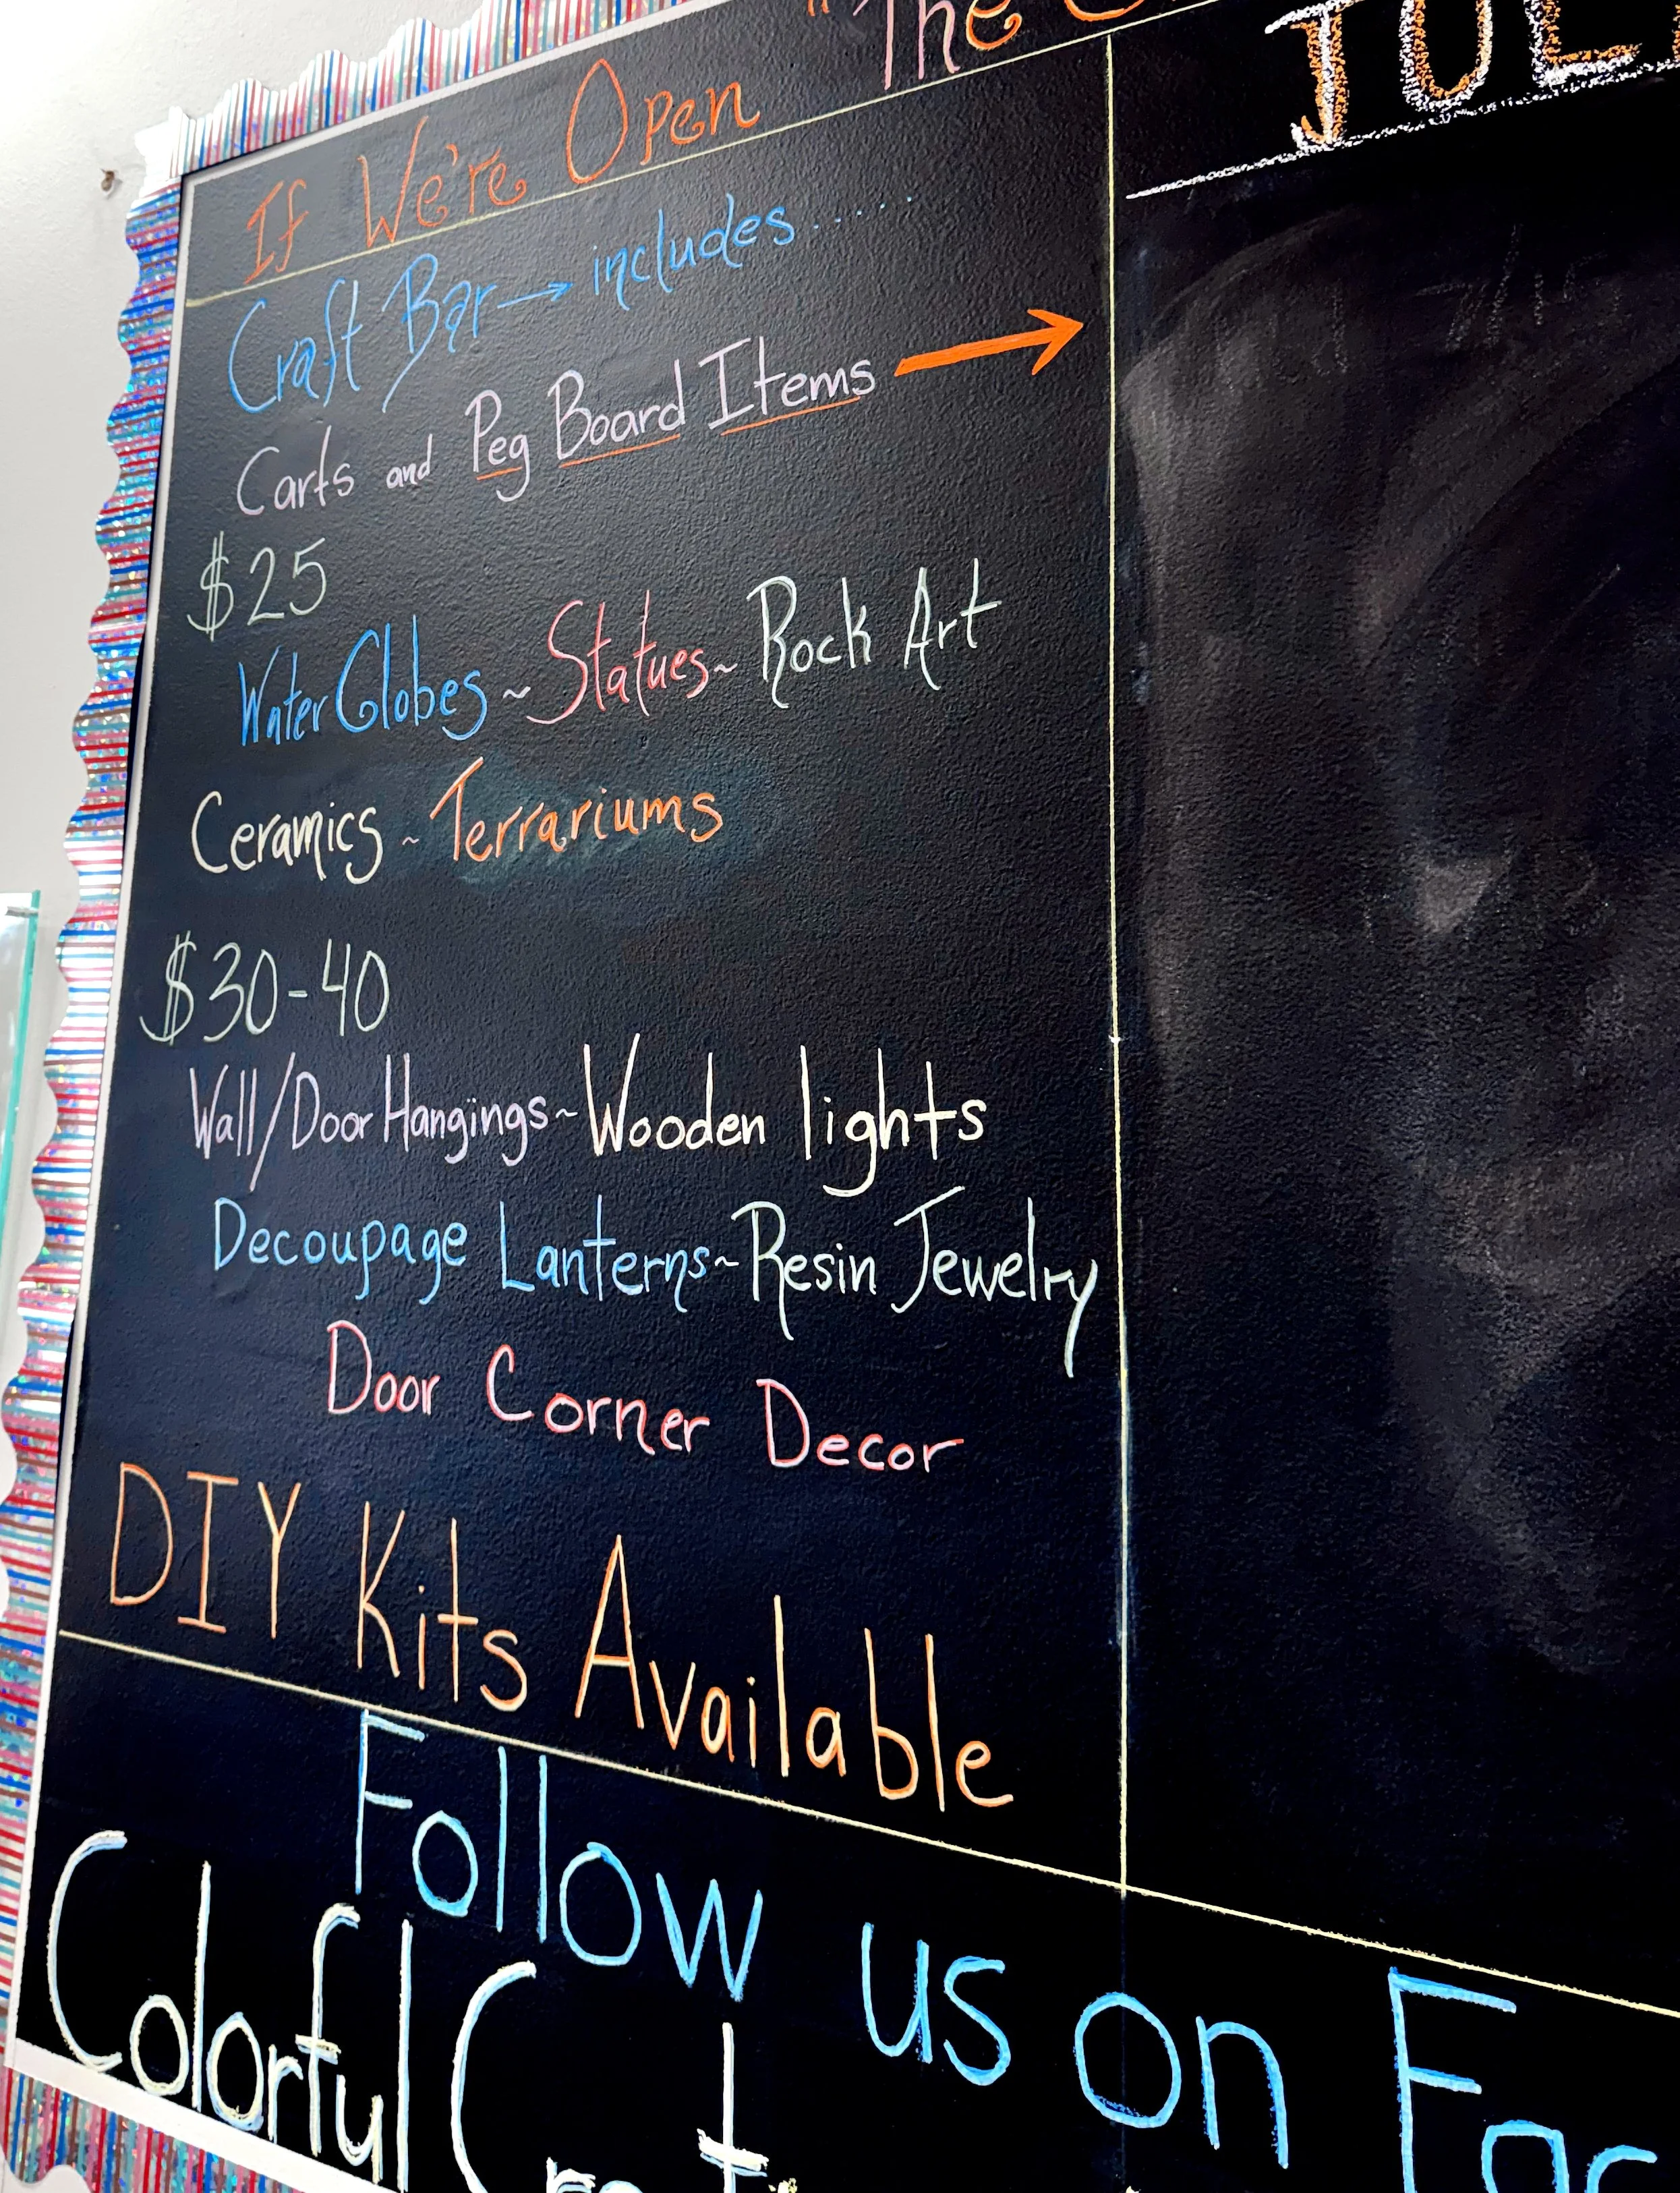 "The
If We're Open
Craft Bar → includes.....
Carts and Peg Board Items →
$25
Water Globes ~ Statues ~ Rock Art
Ceramics ~ Terrariums
$30-40
Wall/Door Hangings ~ Wooden lights
Decoupage Lanterns ~ Resin Jewelry
Door Corner Decor
DIY Kits Available
Follow us on
Colorful